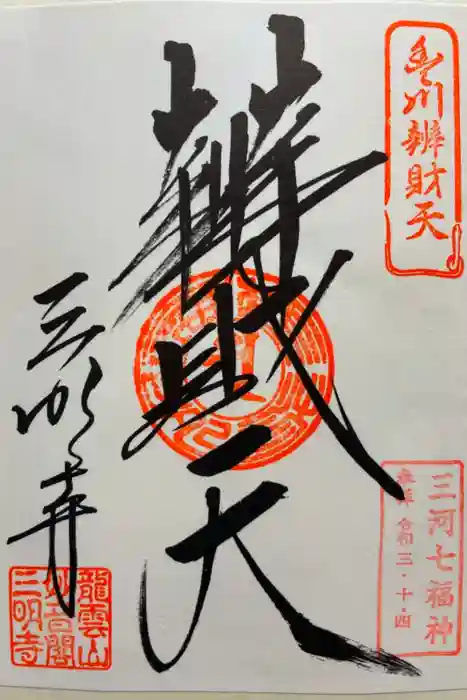 豊川辨財天
三河七福神
参拝 令和三・十・四
辨財天
三明寺
龍雲山
妙音閣
三明寺